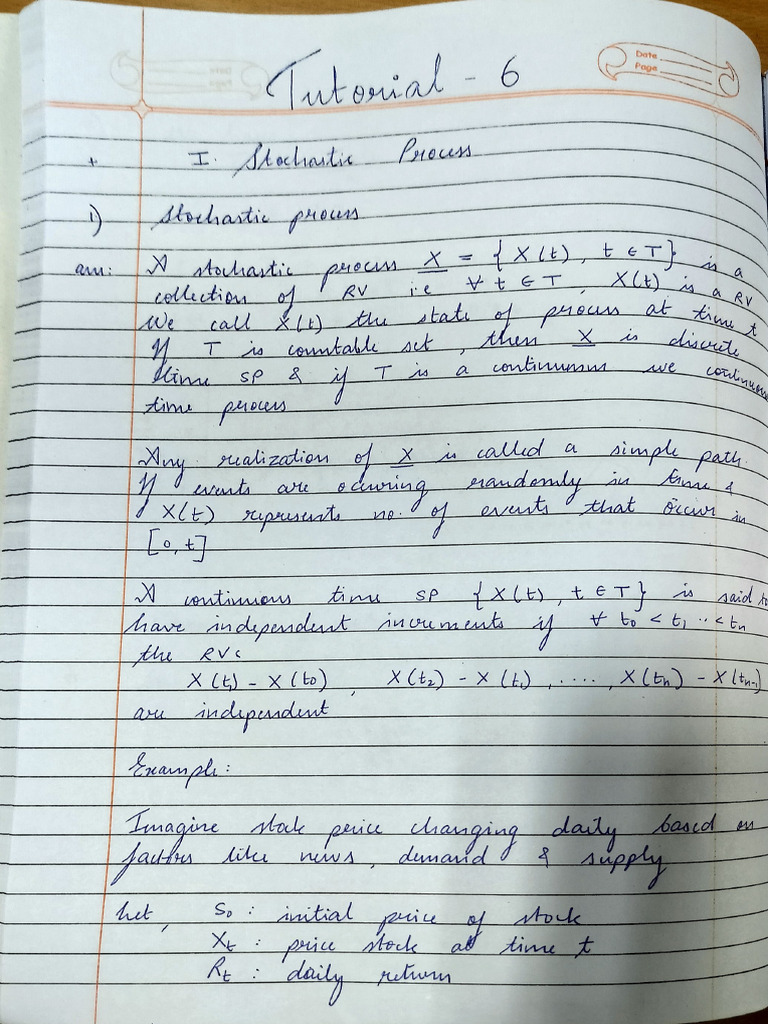 Tutorial - 6
Date
Page
I. Stochastic Process
1) Stochastic process
ans: A stochastic process X = { X(t), t ∈ T } is a
collection of RV i.e ∀ t ∈ T, X(t) is a RV
We call X(t) the state of process at time t
If T is countable set, then X is discrete
time SP & if T is a continuous we continuous
time process
Any realization of X is called a simple path.
If events are occuring randomly in time &
X(t) represents no. of events that occur in
[0, t]
A continuous time SP { X(t), t ∈ T } is said to
have independent increments if ∀ t0 < t1 .. < tn
the RVs
X(t1) - X(t0), X(t2) - X(t1), ...., X(tn) - X(tn-1)
are independent
Example:
Imagine stock price changing daily based on
factors like news, demand & supply
Let, S0 : initial price of stock
Xt : price stock at time t
Rt : daily return